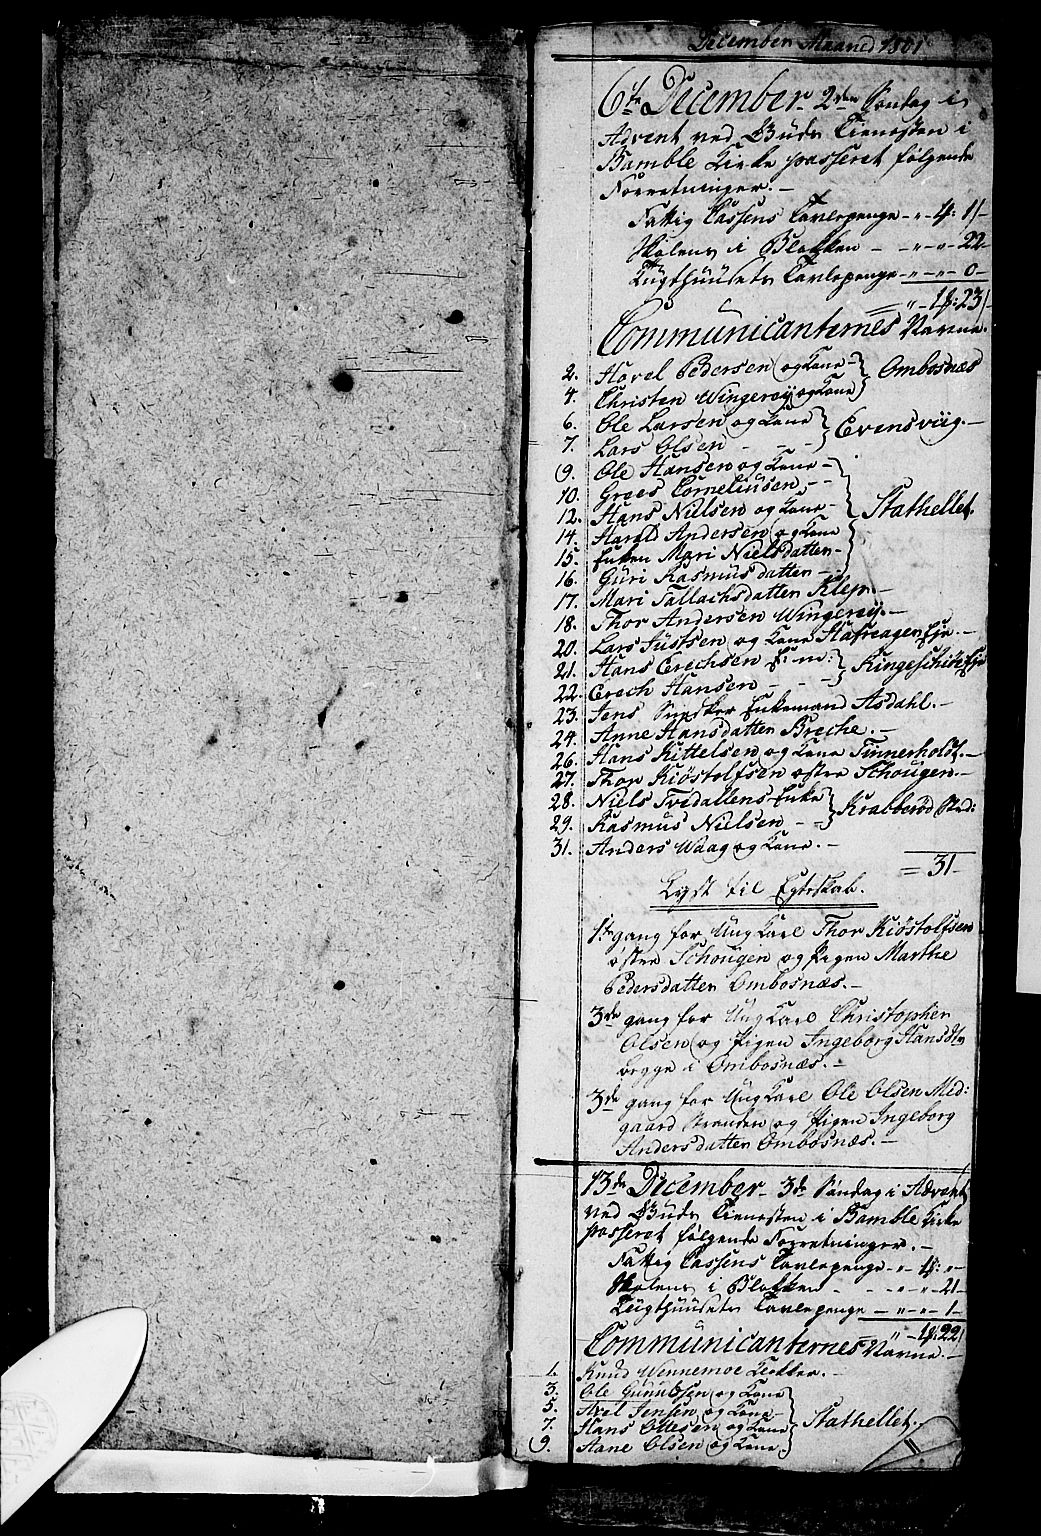 December Maaned 1801
6te December 2den Søndag i
Advent ved Guds Tienesten i
Bamble Kirke passeret følgende
Forretninger. -
Fattig Cassens Tavlepenge - " - 1 : 1 -
Skolens i Blokken - - " - " - 22 -
Tugthuusets Tavlepenge - " - " - 0 -
" - 1 : 23
Communicanternes Navne.
2. Havel Pedersen og Kone - } Ombosnæs
4. Christen Wingereøj og Kone }
6. Ole Larsen og Kone } Evensviig. -
7. Lars Olsen - - - }
9. Ole Hansen og Kone -
10. Grees Corneliusen. - -
12. Hans Nielsen og Kone - } Stathellet.
14. Harald Andersen og Kone
15. Enken Mari Nielsdatter -
16. Guri Rasmusdatter - -
17. Mari Tallachsdatter Klep. -
18. Thor Andersen Wingereøj. -
20. Lars Justsen og Kone Hafreager Eje. -
21. Hans Erechsen } Eje
22. Erech Hansen - - - }
23. Jens Snedker Enkemand Asdahl. -
24. Anne Hansdatter Breche. -
26. Hans Kittelsen og Kone Tinnerholdt. -
27. Thor Kiöstolfsen østre Schougen. -
28. Niels Tvedallens Enke }
29. Rasmus Nielsen - - }
31. Anders Waag og Kone. -
= 31 -
Lyst til Egteskab.
1te gang for Ung Karl Thor Kiöstolfsen
østre Schougen og Pigen Marthe
Pedersdatter Ombosnæs. -
3de gang for Ung Karl Christopher
Olsen og Pigen Ingeborg Hansdtr
begge i Ombosnæs. -
3de gang for Ung Karl Ole Olsen Med:
gaard Stranden og Pigen Ingeborg
Andersdatter Ombosnæs. -
13de December 3de Søndag i Advent
ved Guds Tienesten i Bamble Kirke
passeret følgende Forretninger. -
Fattig Cassens Tavlepenge - " - 1 : " -
Skolens i Blokken - - " - " - 21 -
Tugthuusets Tavlepenge - " - " - 1 -
" - 1 : 22
Communicanternes Navne. -
1. Knud Wennemoe Klokker. -
3. Ole Gunulfsen og Kone
5. Axel Jensen og Kone - } Stathellet.
7. Hans Ottesen og Kone
9. Aane Olsen og Kone